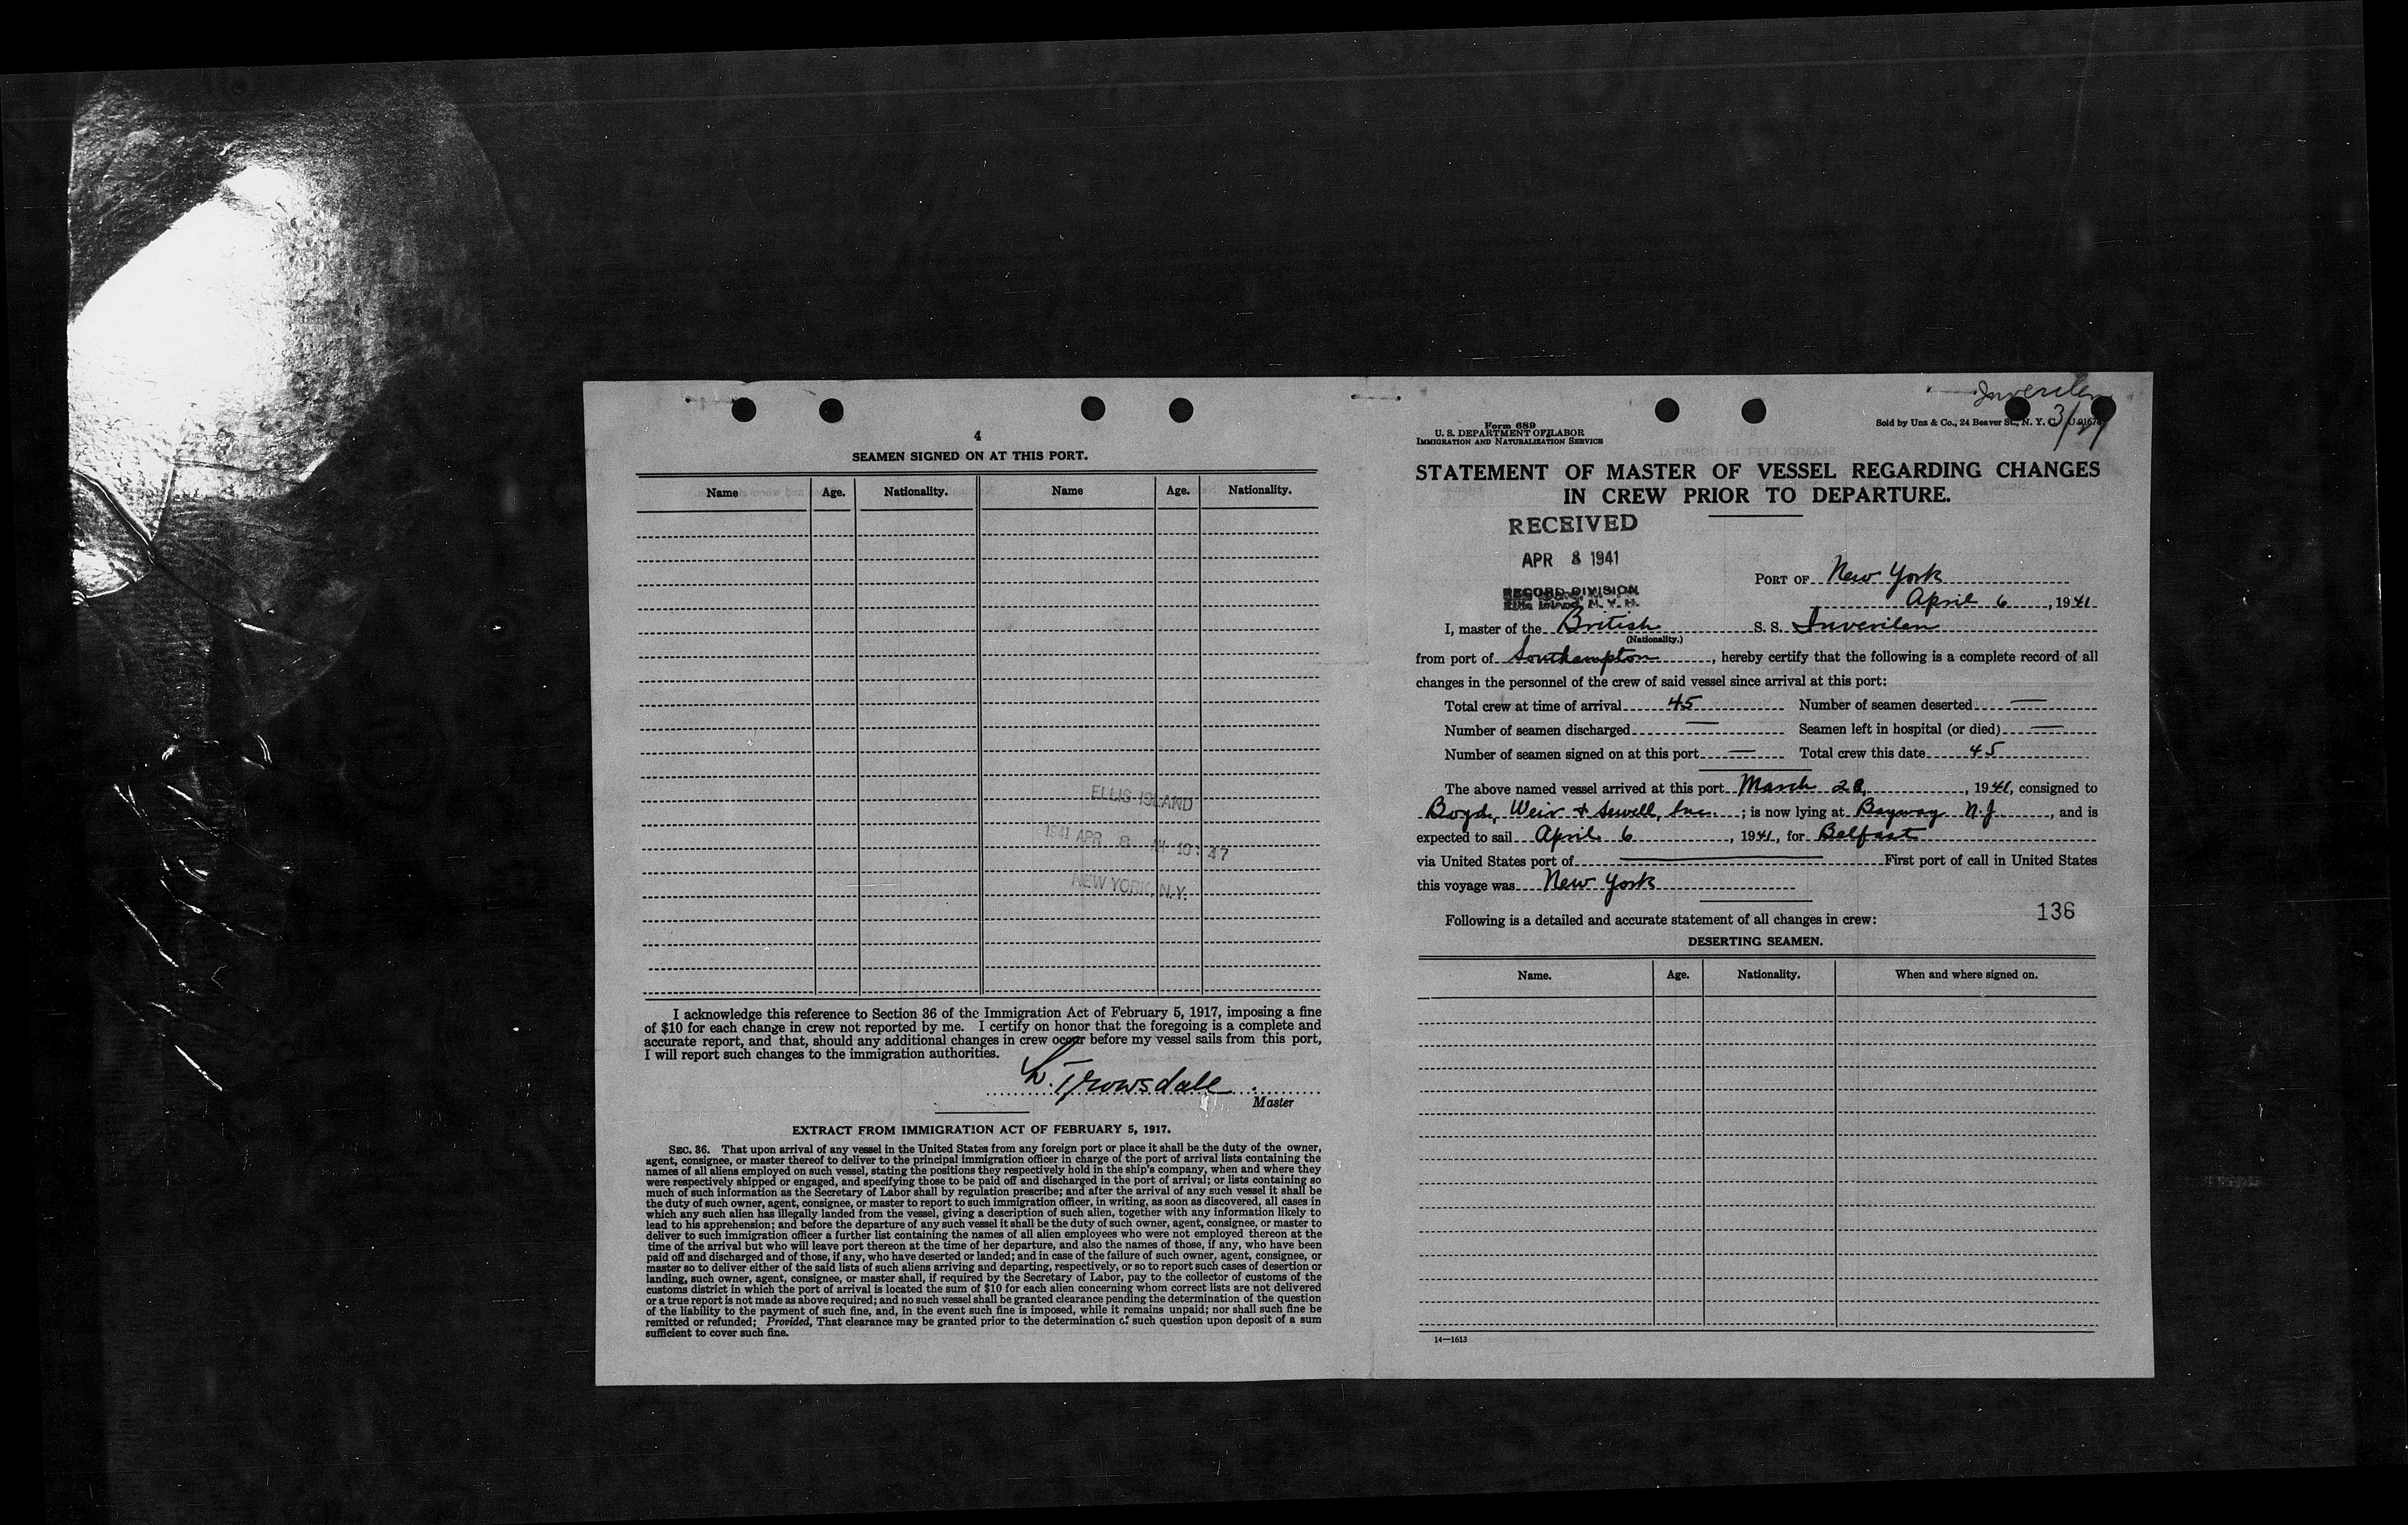 4
SEAMEN SIGNED ON AT THIS PORT.
Name Age. Nationality. Name Age. Nationality.
ELLIS ISLAND
1941 APR 8 AM 10:47
NEW YORK, N.Y.
I acknowledge this reference to Section 36 of the Immigration Act of February 5, 1917, imposing a fine
of $10 for each change in crew not reported by me. I certify on honor that the foregoing is a complete and
accurate report, and that, should any additional changes in crew occur before my vessel sails from this port,
I will report such changes to the immigration authorities.
Trowsdale
Master
EXTRACT FROM IMMIGRATION ACT OF FEBRUARY 5, 1917.
SEC. 36. That upon arrival of any vessel in the United States from any foreign port or place it shall be the duty of the owner,
agent, consignee, or master thereof to deliver to the principal immigration officer in charge of the port of arrival lists containing the
names of all aliens employed on such vessel, stating the positions they respectively hold in the ship's company, when and where they
were respectively shipped or engaged, and specifying those to be paid off and discharged in the port of arrival; or lists containing so
much of such information as the Secretary of Labor shall by regulation prescribe; and after the arrival of any such vessel it shall be
the duty of such owner, agent, consignee, or master to report to such immigration officer, in writing, as soon as discovered, all cases in
which any such alien has illegally landed from the vessel, giving a description of such alien, together with any information likely to
lead to his apprehension; and before the departure of any such vessel it shall be the duty of such owner, agent, consignee, or master to
deliver to such immigration officer a further list containing the names of all alien employees who were not employed thereon at the
time of the arrival but who will leave port thereon at the time of her departure, and also the names of those, if any, who have been
paid off and discharged and of those, if any, who have deserted or landed; and in case of the failure of such owner, agent, consignee, or
master so to deliver either of the said lists of such aliens arriving and departing, respectively, or so to report such cases of desertion or
landing, such owner, agent, consignee, or master shall, if required by the Secretary of Labor, pay to the collector of customs of the
customs district in which the port of arrival is located the sum of $10 for each alien concerning whom correct lists are not delivered
or a true report is not made as above required; and no such vessel shall be granted clearance pending the determination of the question
of the liability to the payment of such fine, and, in the event such fine is imposed, while it remains unpaid; nor shall such fine be
remitted or refunded; Provided, That clearance may be granted prior to the determination of such question upon deposit of a sum
sufficient to cover such fine.
Inverilen
Form 689
U. S. DEPARTMENT OF LABOR
IMMIGRATION AND NATURALIZATION SERVICE
Sold by Unz & Co., 24 Beaver St., N. Y. C.
STATEMENT OF MASTER OF VESSEL REGARDING CHANGES
IN CREW PRIOR TO DEPARTURE.
RECEIVED
APR 8 1941
RECORD DIVISION
Ellis Island, N. Y. H.
PORT OF New York
April 6, 1941
I, master of the British S. S. Inverilen
(Nationality.)
from port of Southampton, hereby certify that the following is a complete record of all
changes in the personnel of the crew of said vessel since arrival at this port:
Total crew at time of arrival 45 Number of seamen deserted —
Number of seamen discharged — Seamen left in hospital (or died) —
Number of seamen signed on at this port — Total crew this date 45
The above named vessel arrived at this port March 28, 1941, consigned to
Boyd, Weir & Sewell, Inc. ; is now lying at Bayway N.J., and is
expected to sail April 6, 1941, for Belfast
via United States port of — First port of call in United States
this voyage was New York
Following is a detailed and accurate statement of all changes in crew:
136
DESERTING SEAMEN.
Name. Age. Nationality. When and where signed on.
14—1613